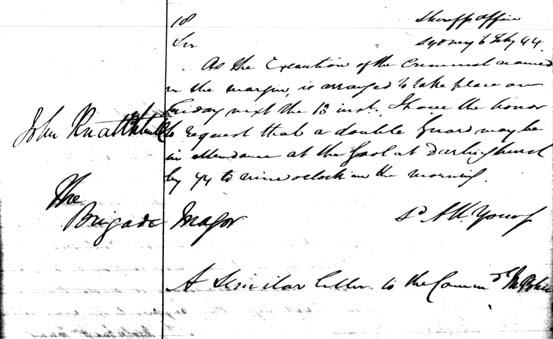 18
Sheriff Office
Sir
Sydney 6 Feby 44
As the Execution of the Criminal named
in the margin, is arranged to take place on
Friday next the 13 inst. I have the honor
John Knatchbull
to request that a double Guard may be
in attendance at the Gaol at Darlinghurst
by 1/4 to nine oclock in the morning.
The
Brigade Major
Sd A W Young
A Similar letter to the Commr of Police